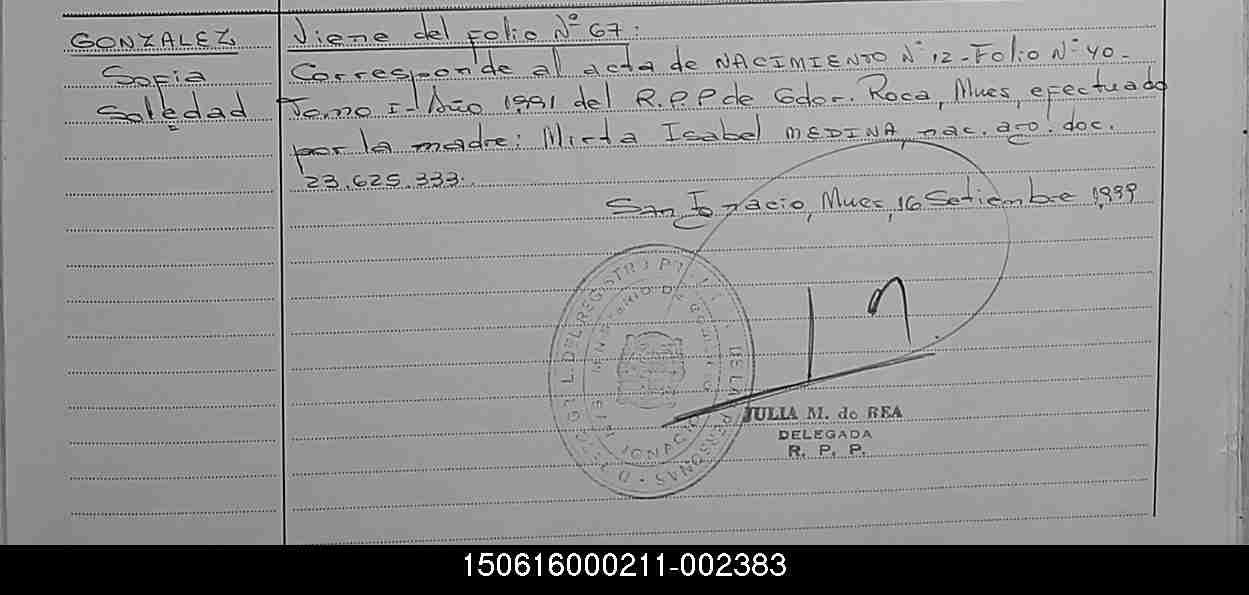 GONZALEZ
Sofia
Soledad
Viene del Folio N° 67:
Corresponde al acta de NACIMIENTO N° 12 - Folio N° 40 -
Tomo I - Año 1991 del R.P.P de Gdor. Roca, Mnes, efectuado
por la madre: Mirta Isabel MEDINA nac. arg. doc.
23.625.333.
San Ignacio, Mnes, 16 Setiembre 1999
JULIA M. de REA
DELEGADA
R. P. P.
150616000211-002383